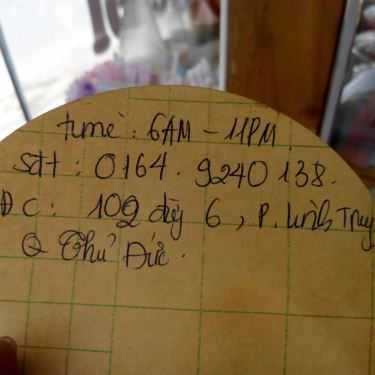 time: 6AM - 11PM
sđt: 0164. 9240 138.
ĐC: 102 đg 6, P. Linh Trung
Q Thủ Đức.